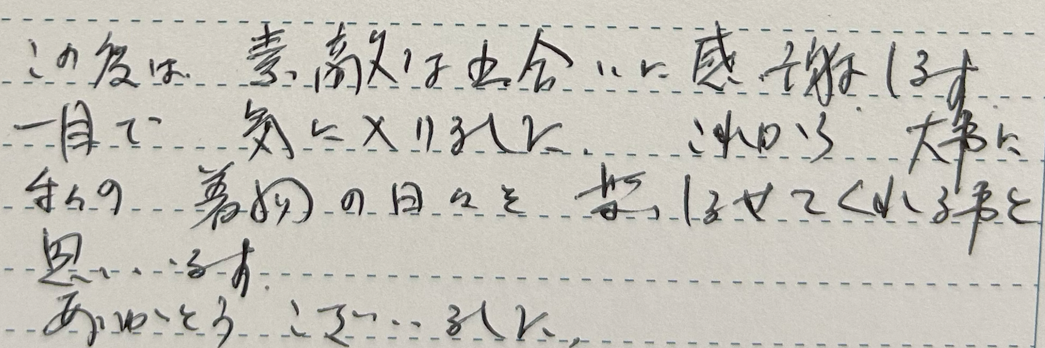 この度は 素敵な出会いに感謝します
一目で 気に入りました。 これから 大事に
私の 着物の日々を 楽しませてくれる事と
思います。
ありがとう ございました。